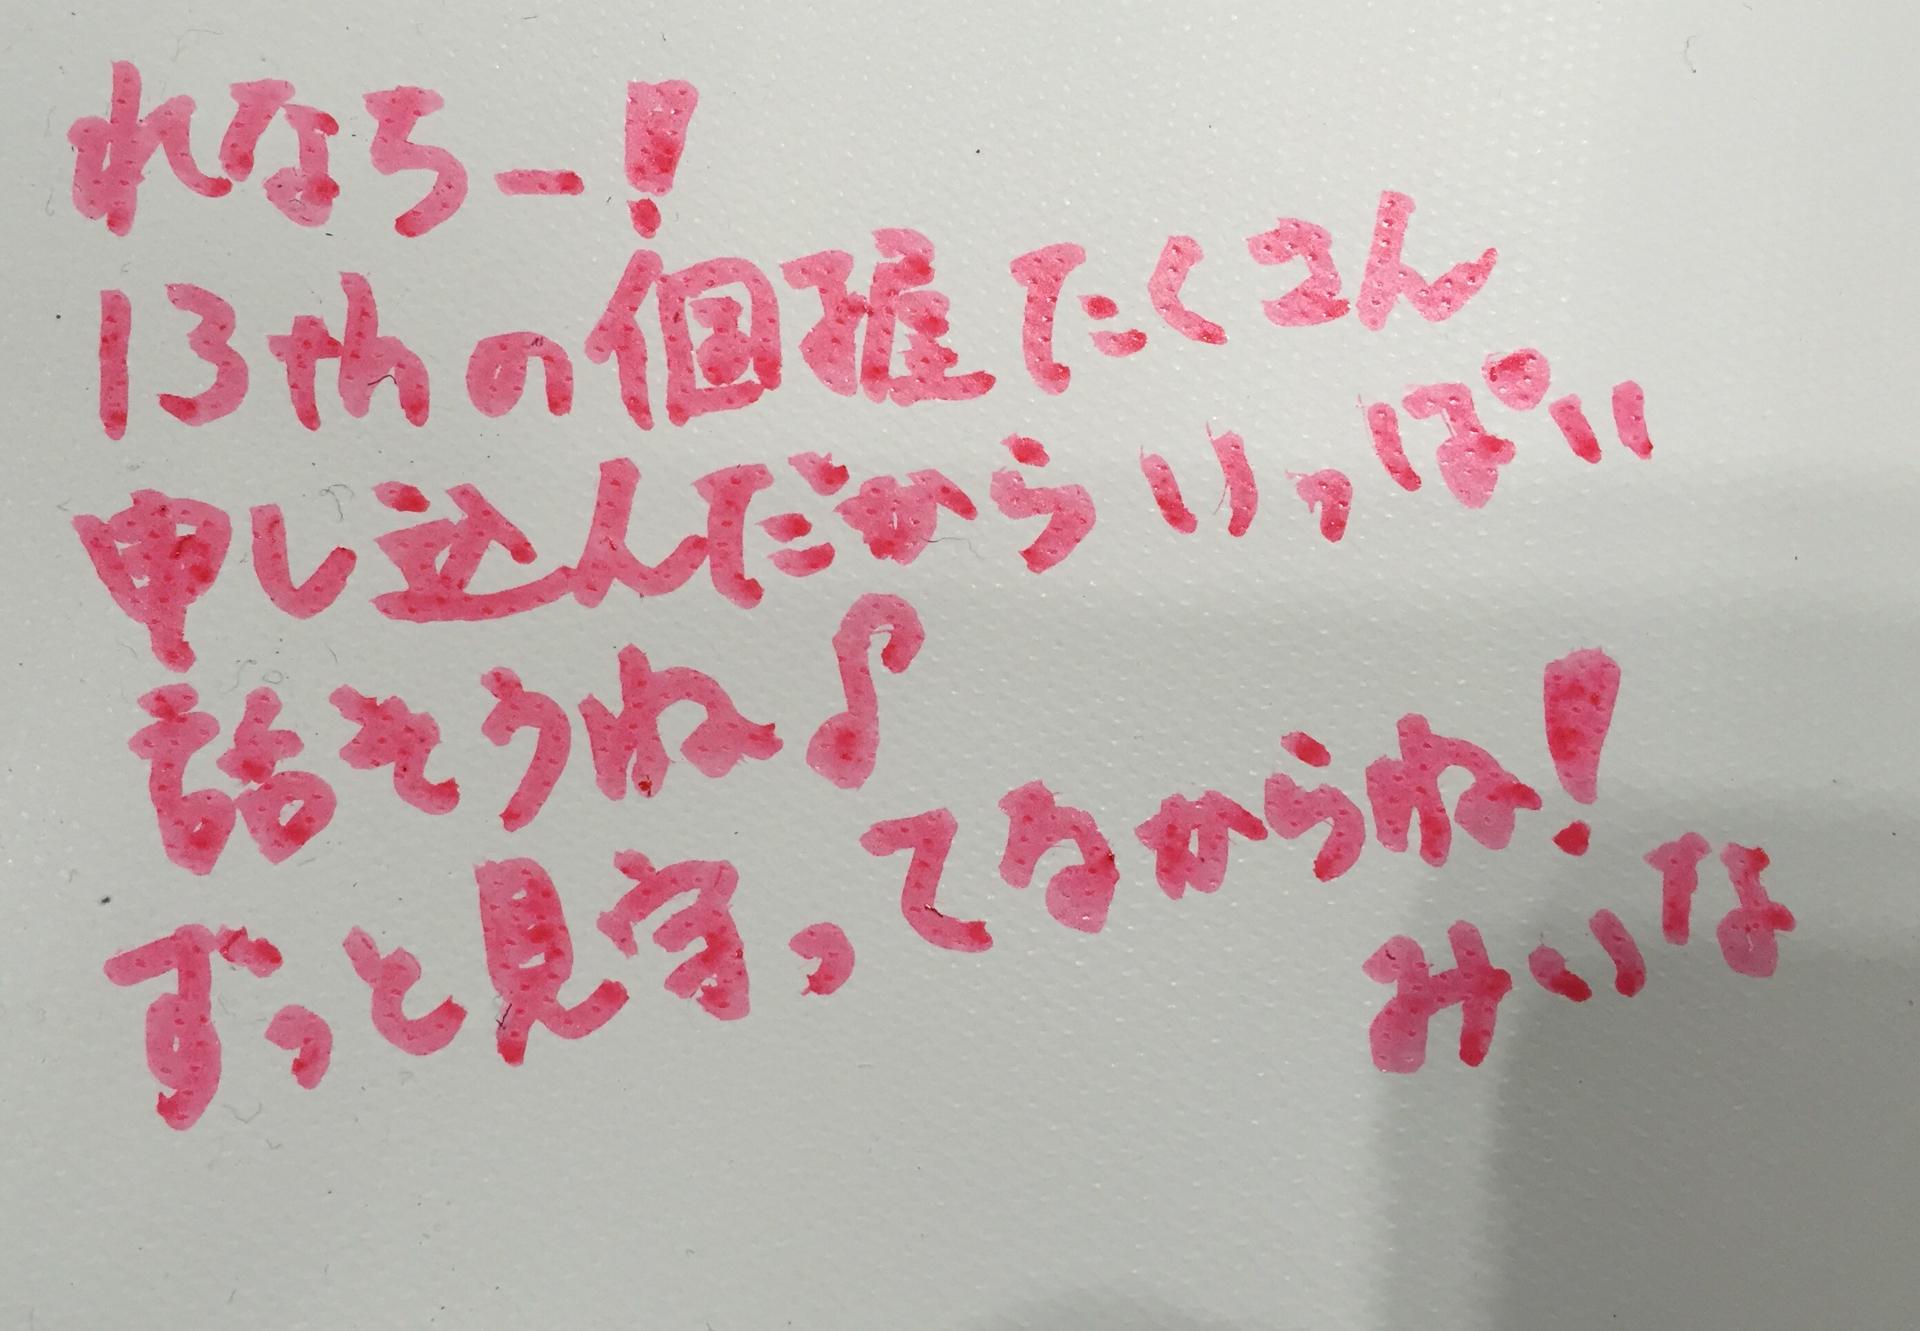 れなちー!
13thの個握たくさん
申し込んだからいっぱい
話そうね♪
ずっと見守ってるからね!
みいな